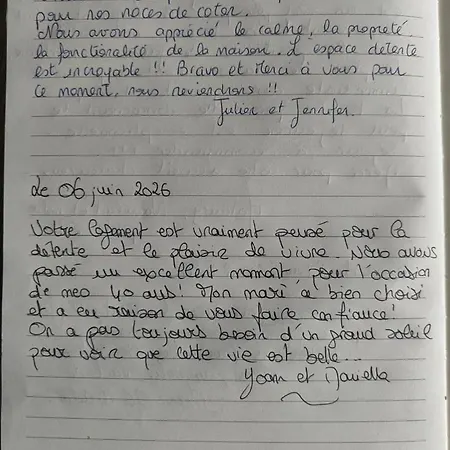 pour nos noces de coton.
Nous avons apprécié le calme, la propreté
la fonctionalité de la maison. L'espace détente
est incroyable !! Bravo et Merci à vous pour
ce moment, nous reviendrons !!
Julien et Jennifer.
Le 06 juin 2026
Votre logement est vraiment pensé pour la
détente et le plaisir de vivre. Nous avons
passé un excellent moment, pour l'occasion
de mes 40 ans! Mon mari a bien choisi
et a eu raison de vous faire confiance!
On a pas toujours besoin d'un grand soleil
pour voir que cette vie est belle...
Yoann et Danielle